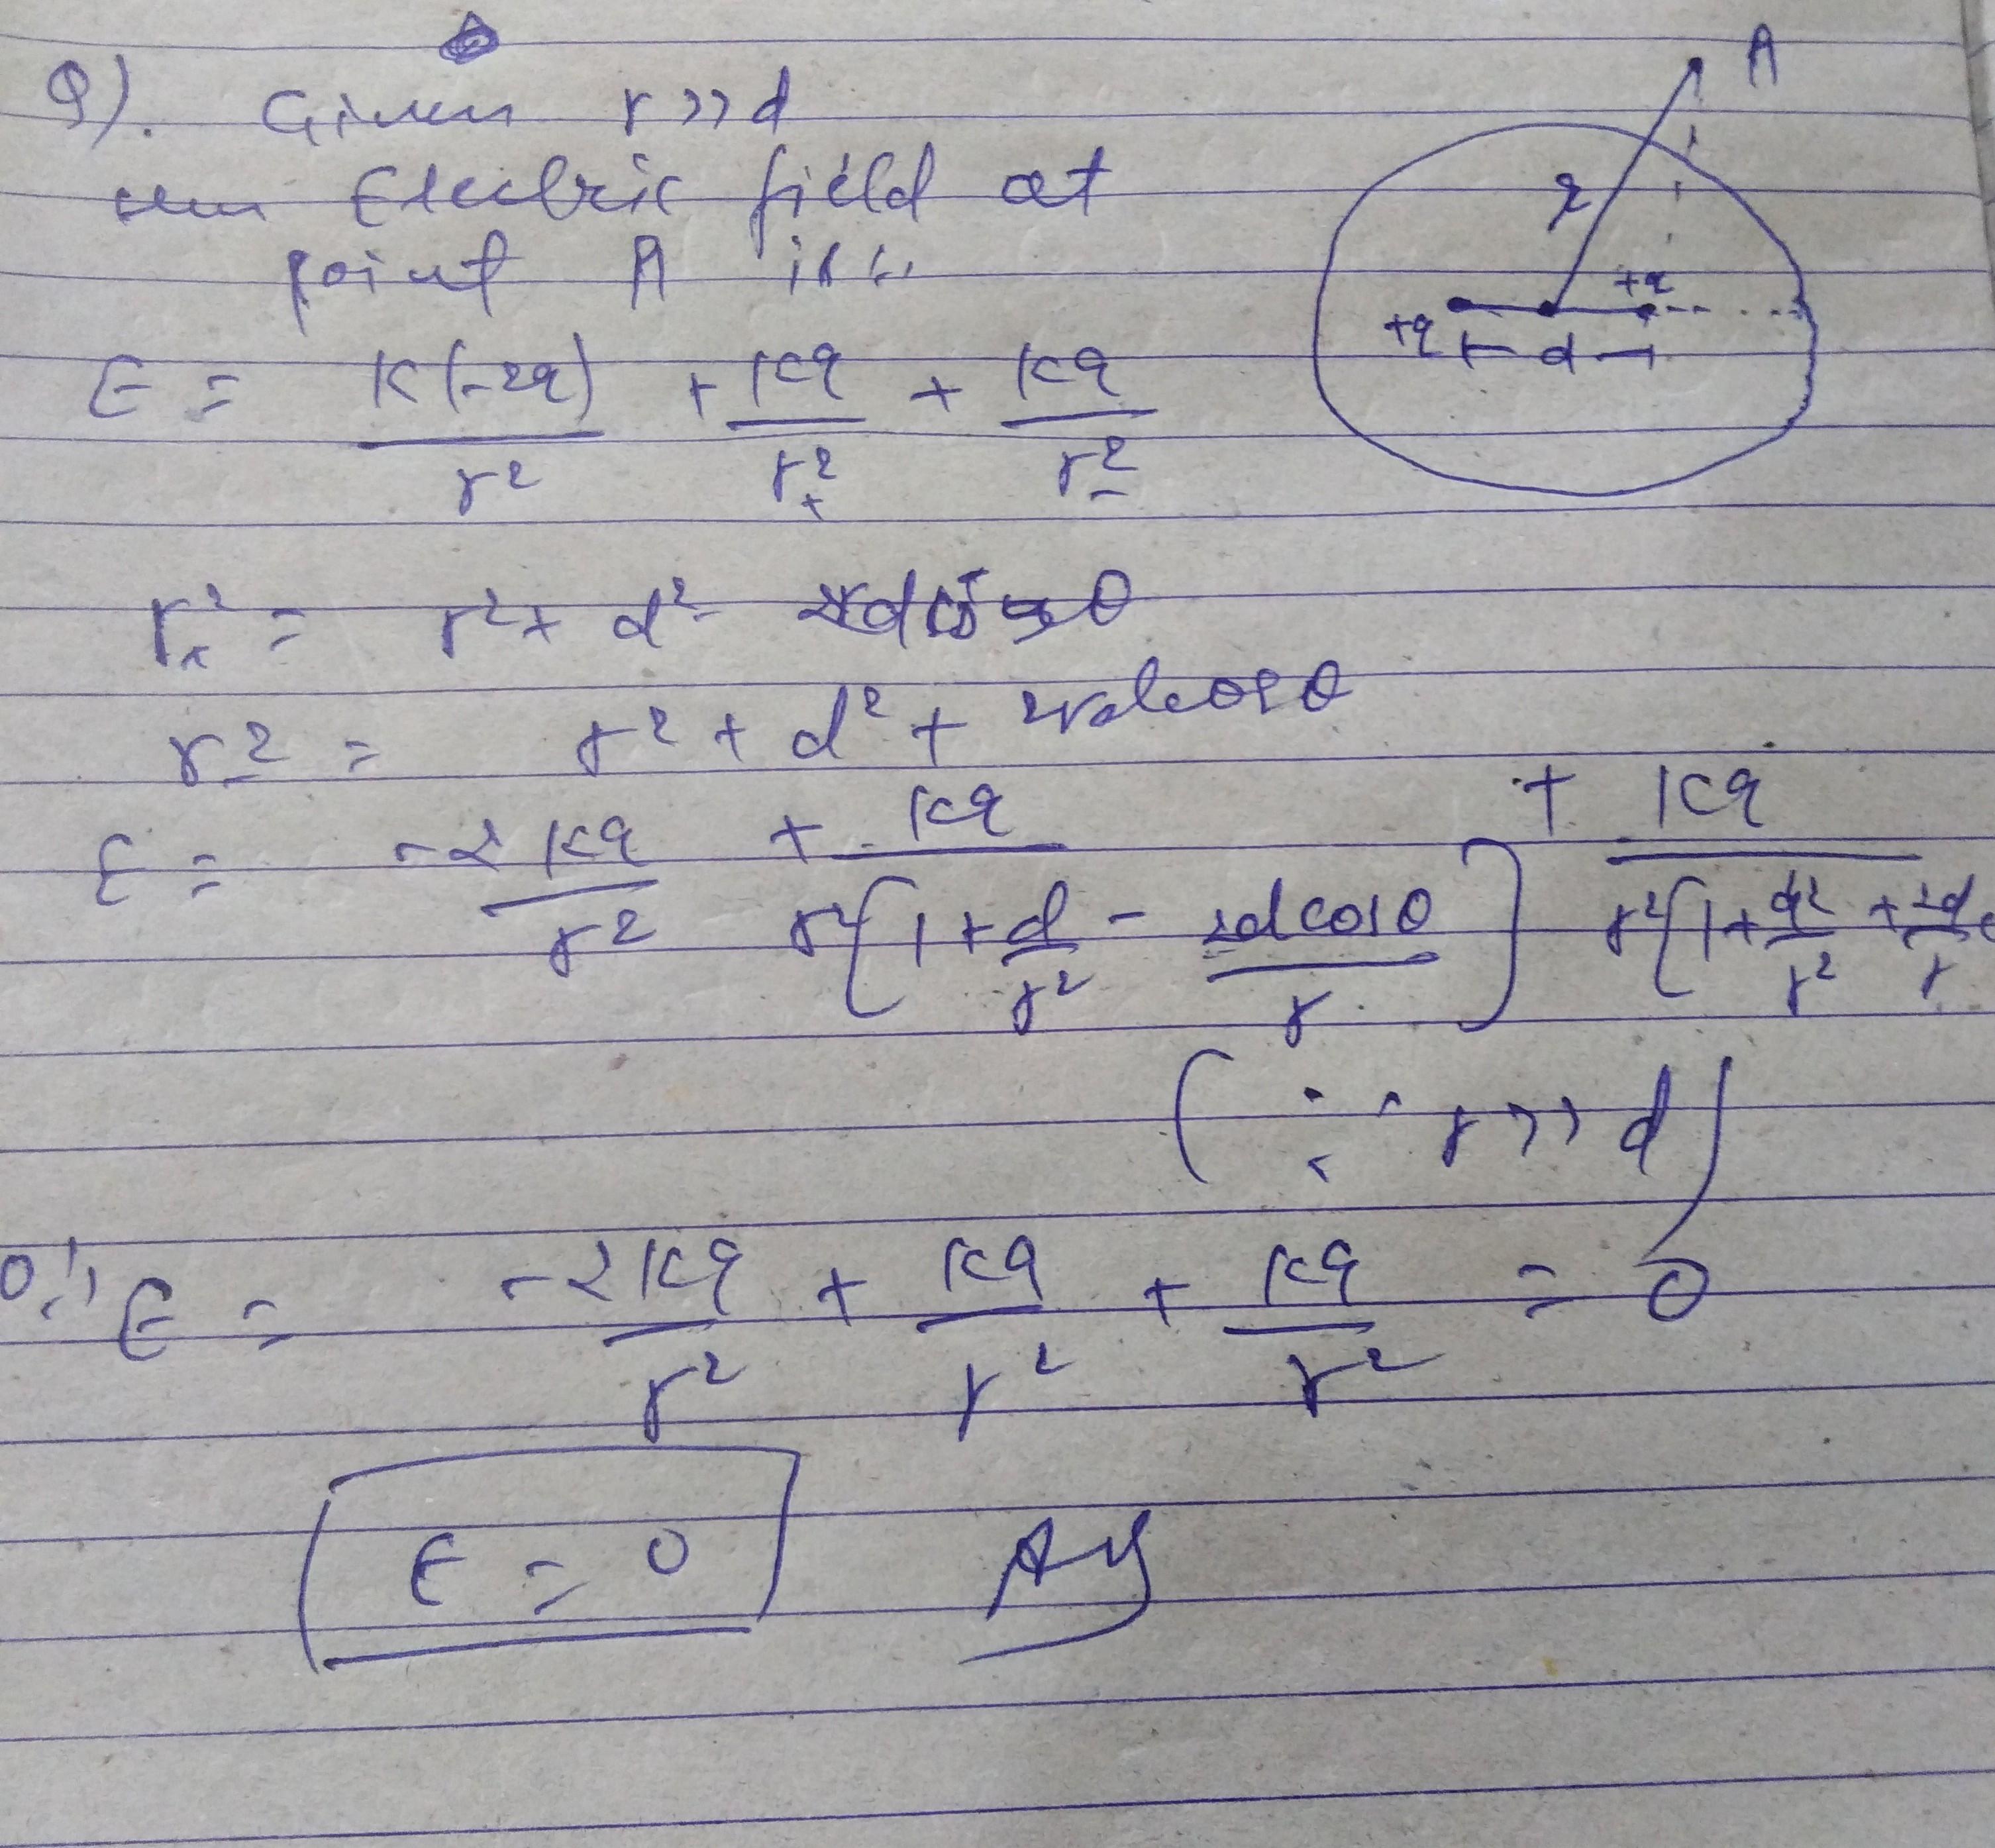 Q). Given r >> d
Electric field at
point A is :-
E = K(-2q)/r² + Kq/r₊² + Kq/r₋²
A
r
+q
+q
d
r₊² = r² + d² - 2rd cos θ
r₋² = r² + d² + 2rd cos θ
E = -2Kq/r² + Kq/r²[1 + d/r² - 2d cos θ/r] + Kq/r²[1 + d²/r² + 2d/r
(∵ r >> d)
E = -2Kq/r² + Kq/r² + Kq/r² = 0
E = 0 Ans